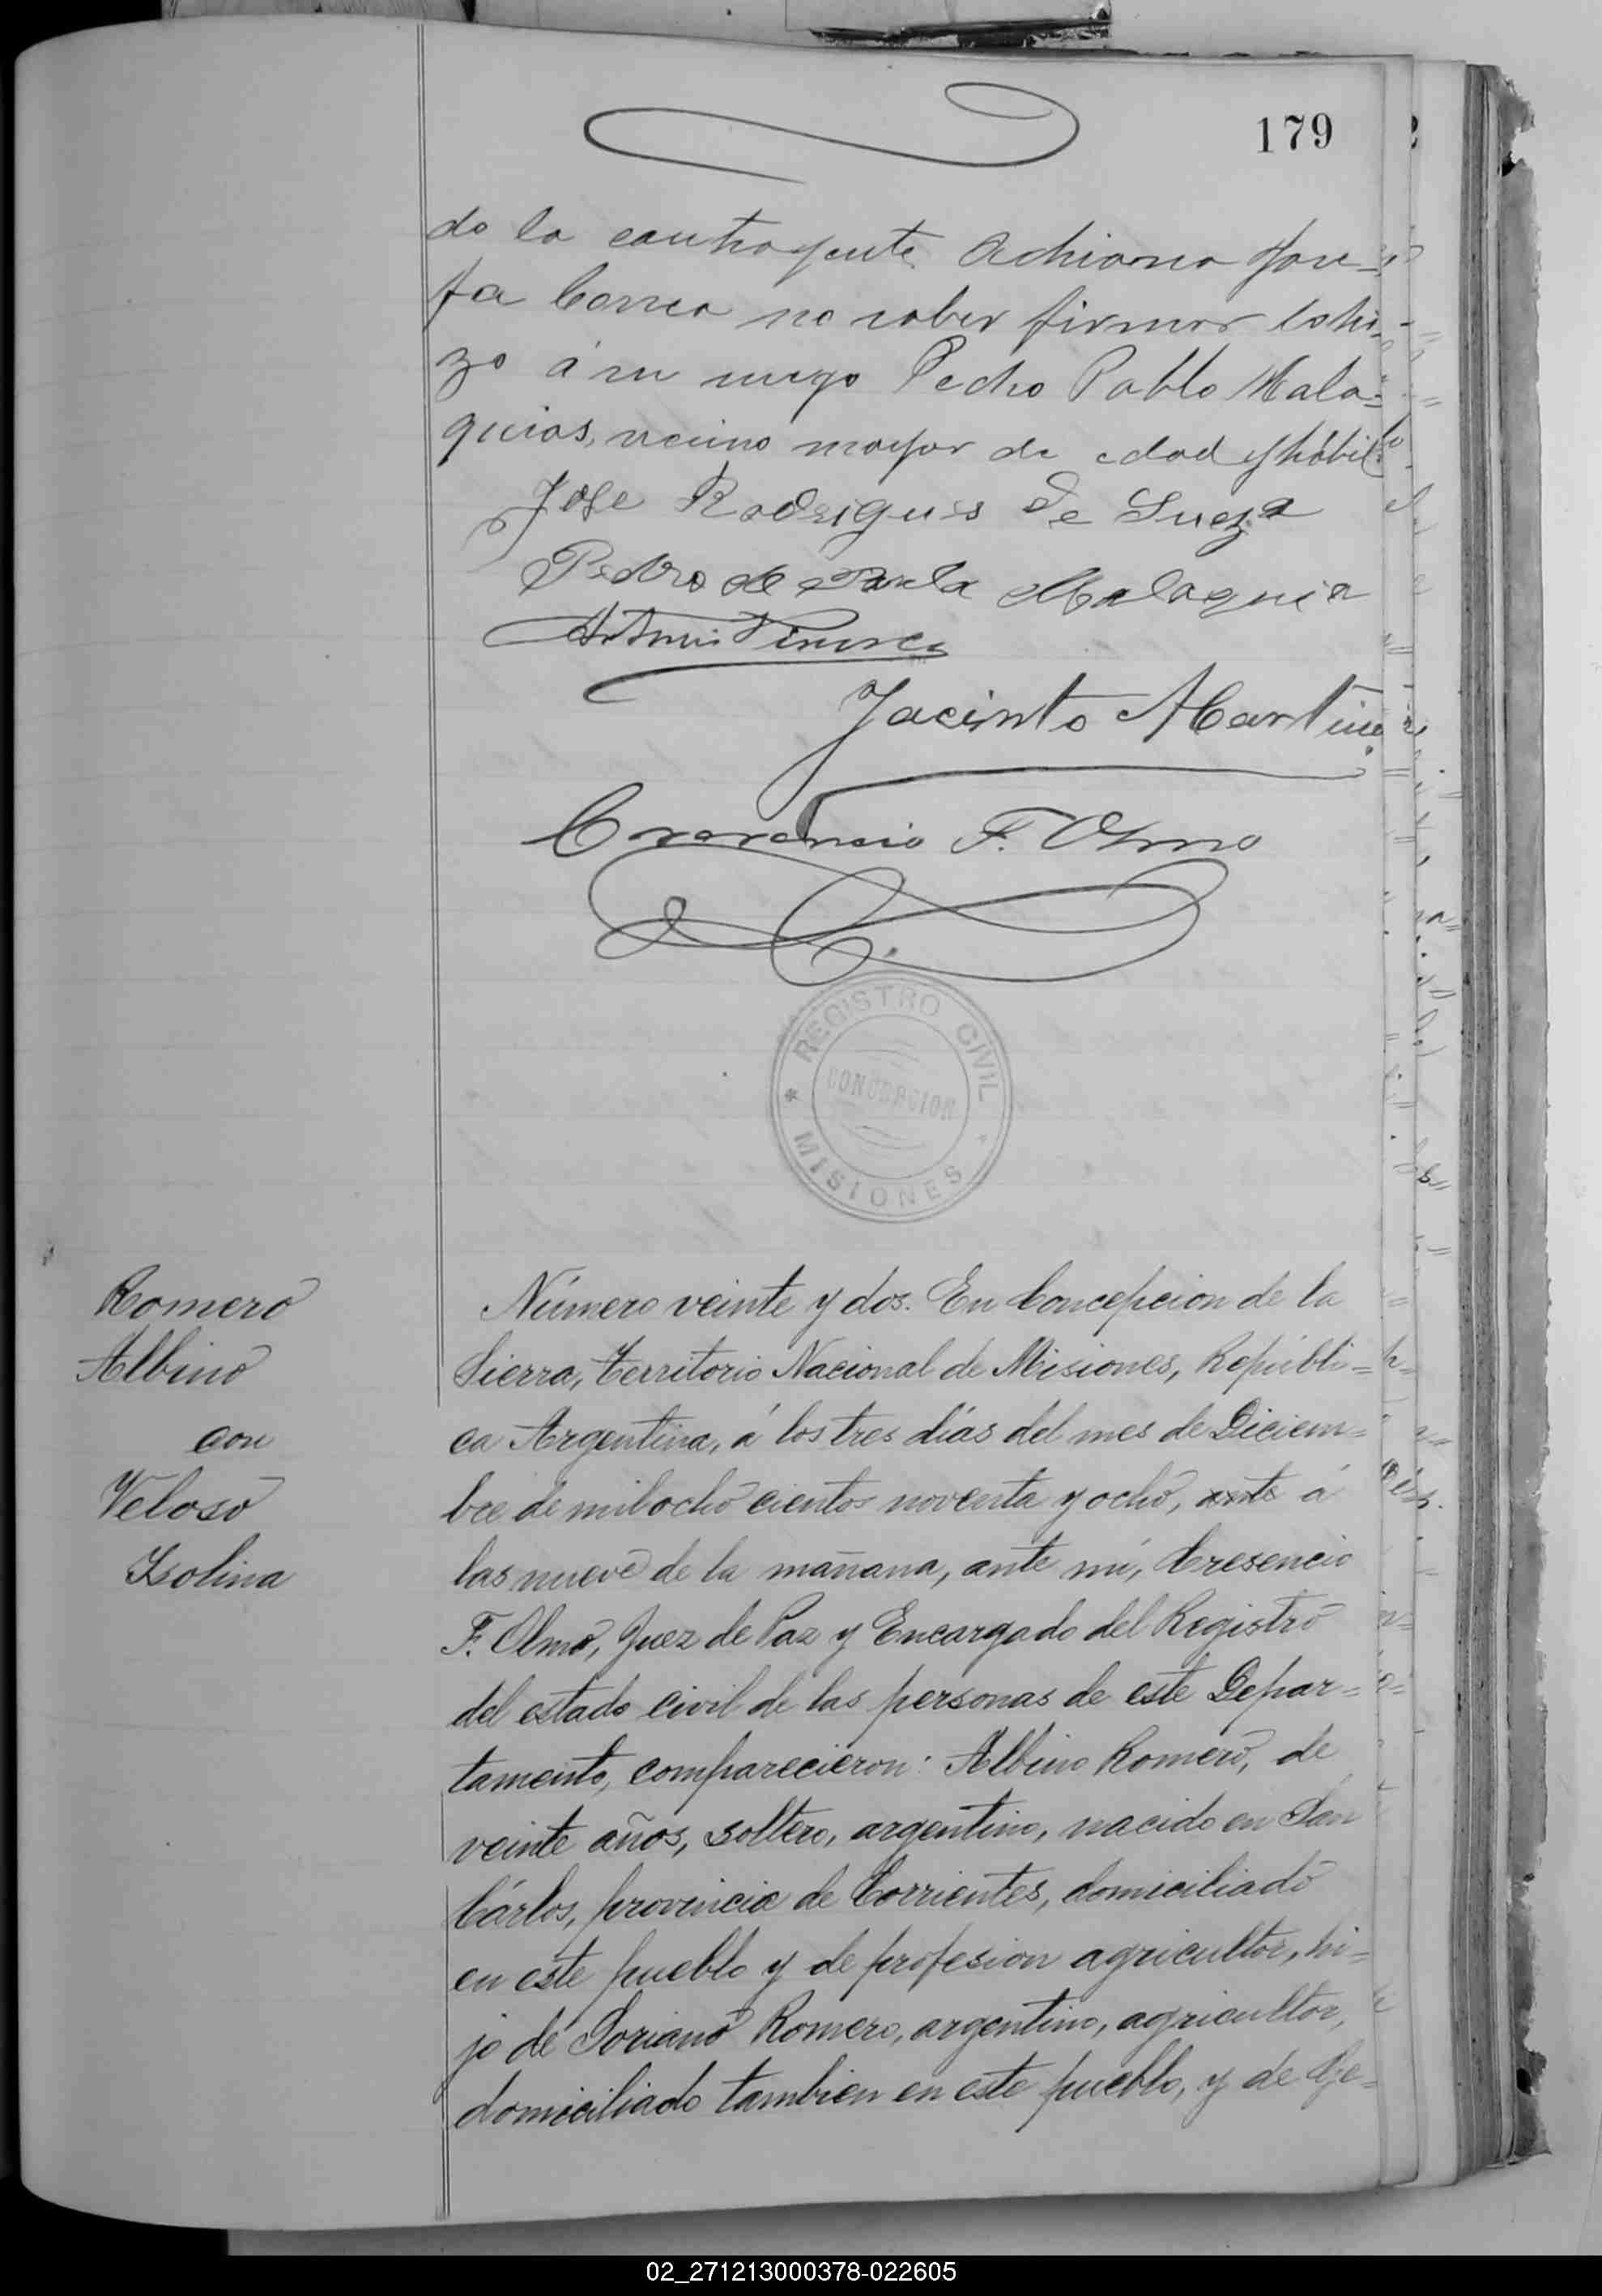 179
do la contrayente Adriana Jose=
fa Correa no saber firmar lo hi=
zo á su ruego Pedro Pablo Mala=
quias, vecino mayor de edad y hábil
Jose Rodrigues de Suoza
Pedro de Paula Malaquia
Jacinto Martine
Cresencio F. Olmo
REGISTRO CIVIL
CONCEPCION
MISIONES
Romero
Albino
con
Veloso
Isolina
Número veinte y dos. En Concepcion de la
Sierra, Territorio Nacional de Misiones, Repúbli=
ca Argentina, á los tres días del mes de Diciem=
bre de mil ocho cientos noventa y ocho, ante á
las nueve de la mañana, ante mí, Cresencio
F. Olmo, Juez de Paz y Encargado del Registro
del estado civil de las personas de este Depar=
tamento, comparecieron: Albino Romero, de
veinte años, soltero, argentino, nacido en San
Cárlos, provincia de Corrientes, domiciliado
en este pueblo y de profesion agricultor, hi=
jo de Soriano Romero, argentino, agricultor,
domiciliado tambien en este pueblo, y de
02_271213000378-022605